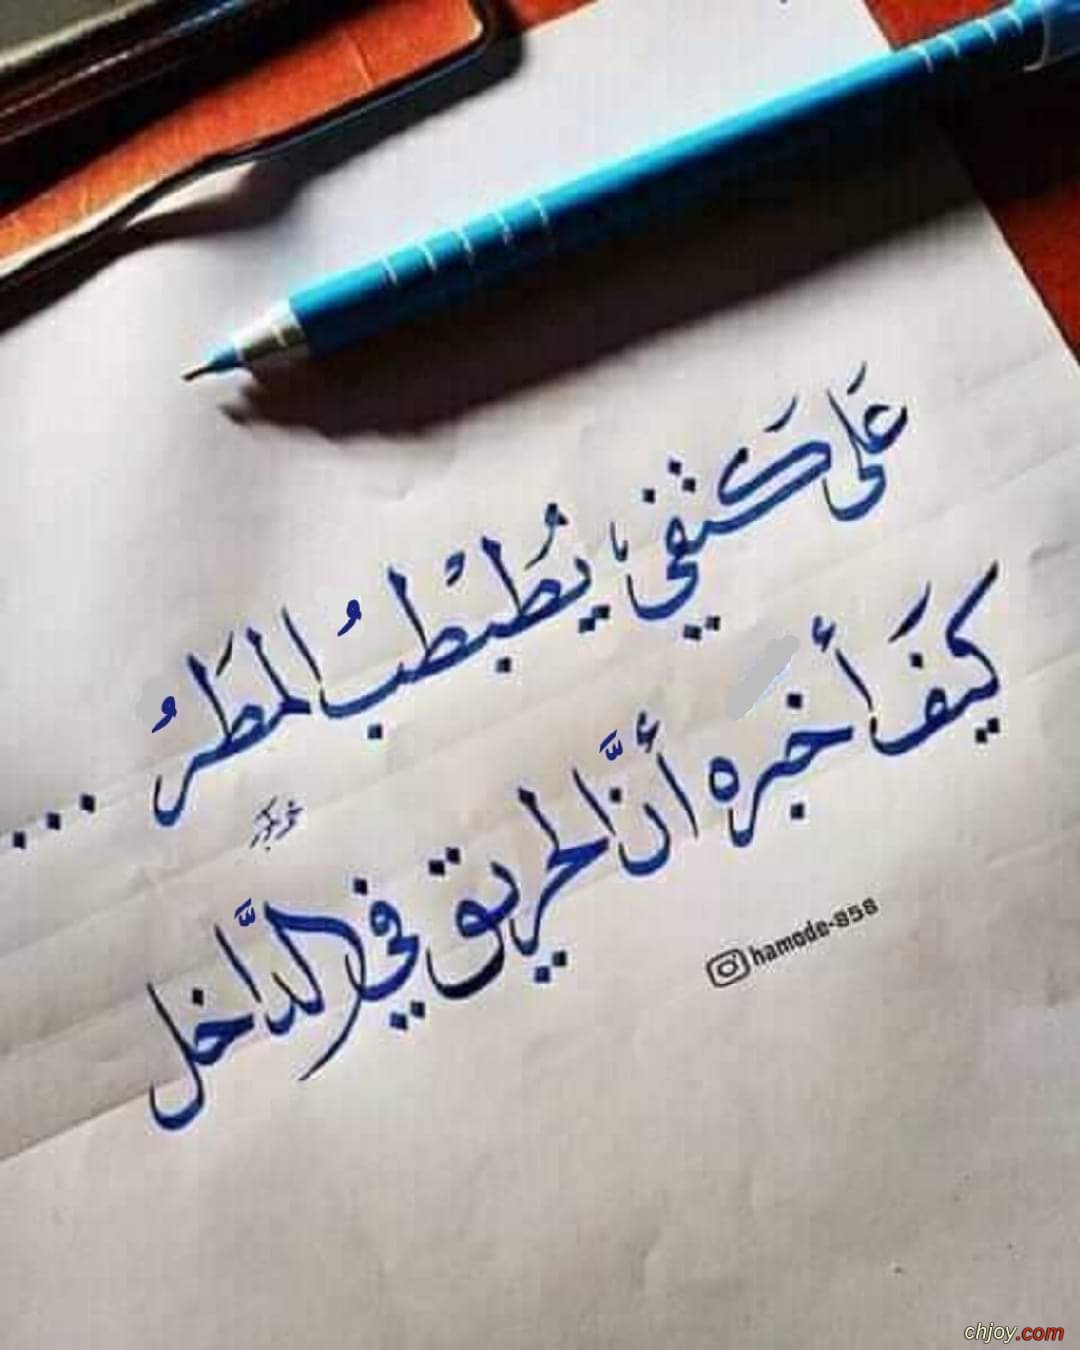 عَلَى كَتِفي يُطَبْطِبُ المَطَرُ ...
كيفَ أخبره أنَّ الحريق في الدَّاخل
hamode-858
chjoy.com